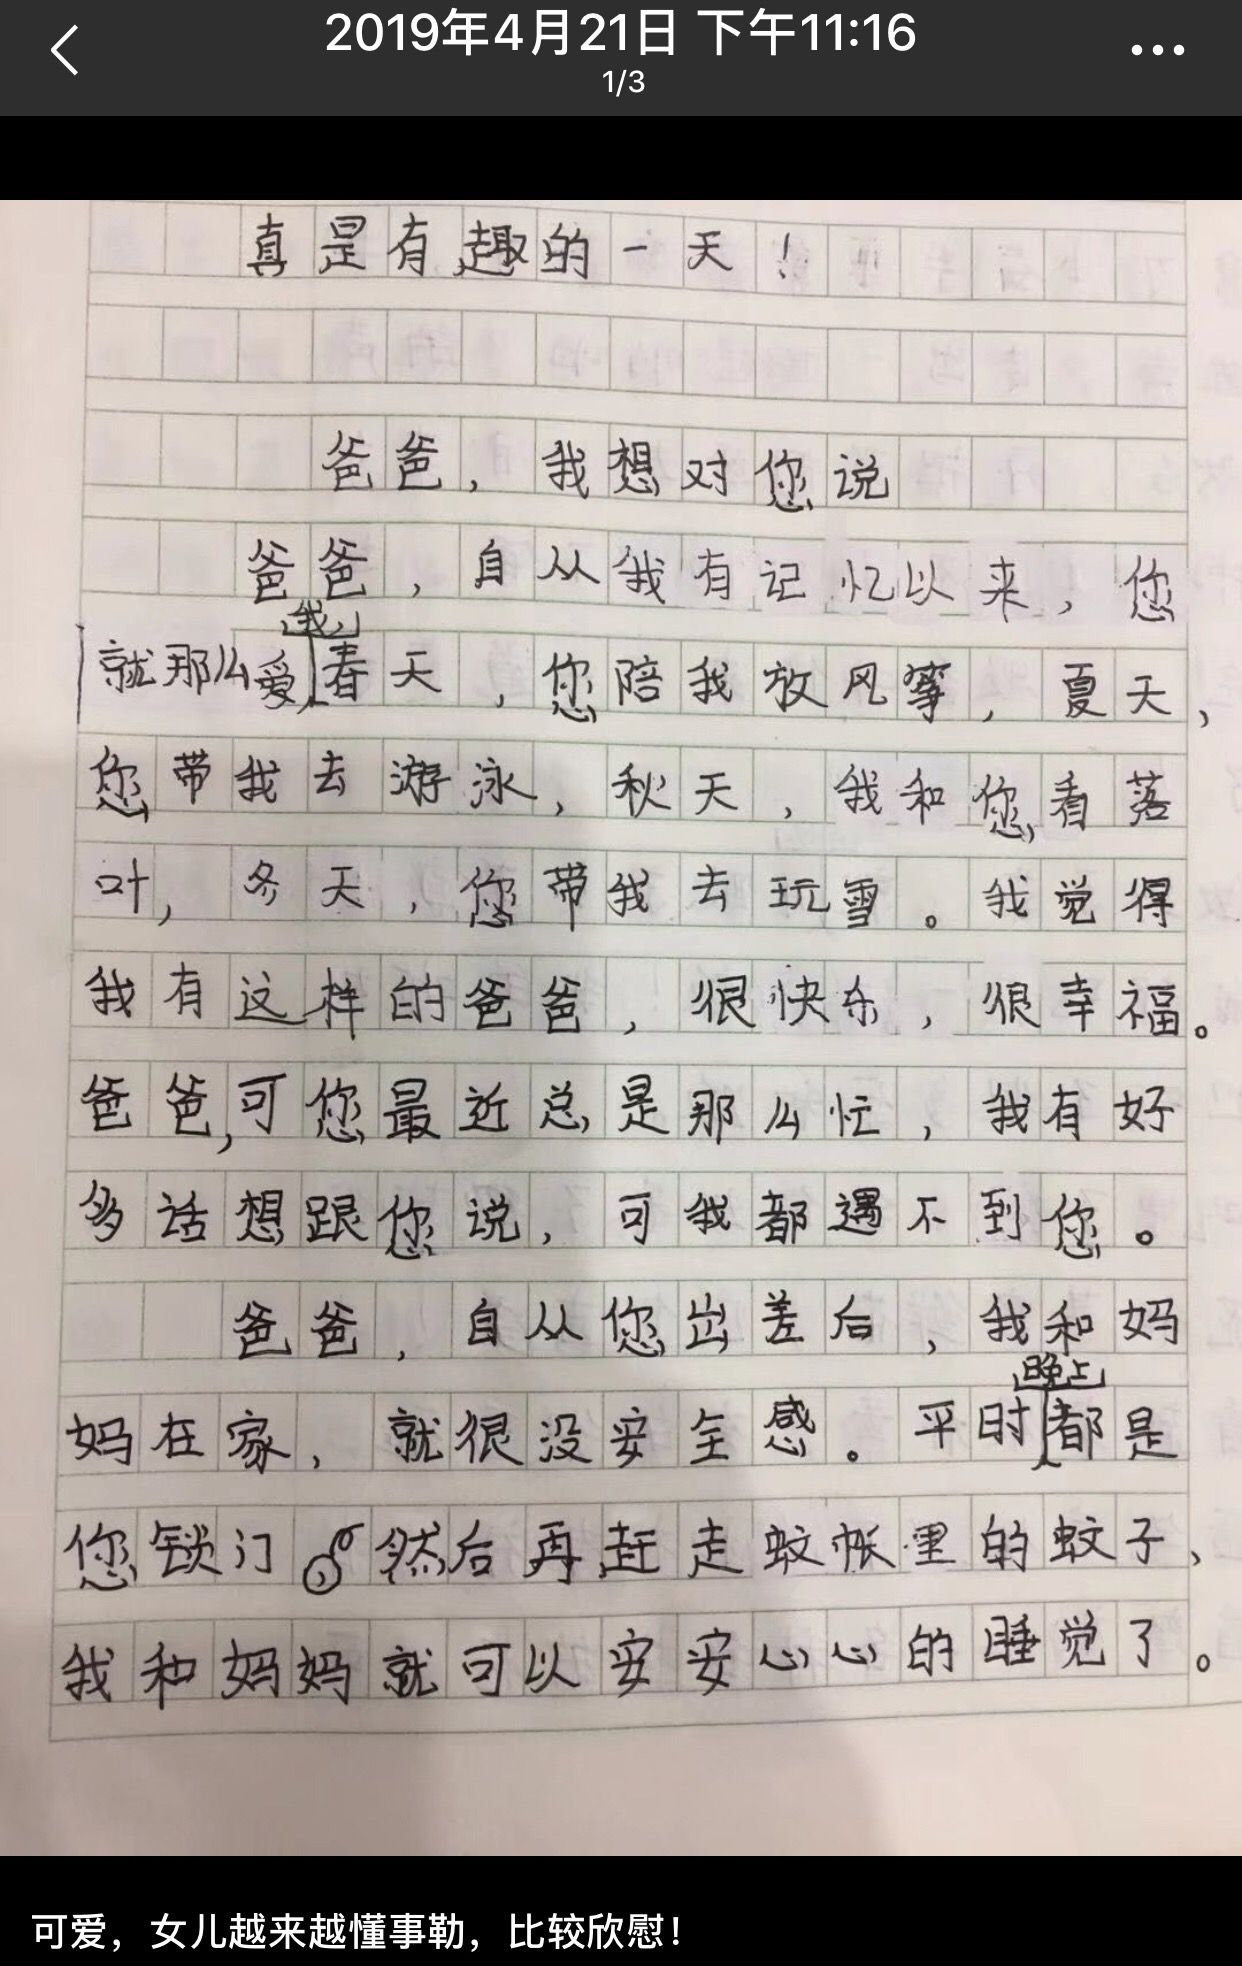 2019年4月21日 下午11:16
1/3
真是有趣的一天！
爸爸，我想对您说
爸爸，自从我有记忆以来，您
我，
就那么爱春天，您陪我放风筝，夏天，
您带我去游泳，秋天，我和您看落
叶，冬天，您带我去玩雪。我觉得
我有这样的爸爸，很快乐，很幸福。
爸爸，可您最近总是那么忙，我有好
多话想跟您说，可我都遇不到您。
爸爸，自从您出差后，我和妈
晚上
妈在家，就很没安全感。平时都是
您锁门然后再赶走蚊帐里的蚊子，
我和妈妈就可以安安心心的睡觉了。
可爱，女儿越来越懂事勒，比较欣慰！